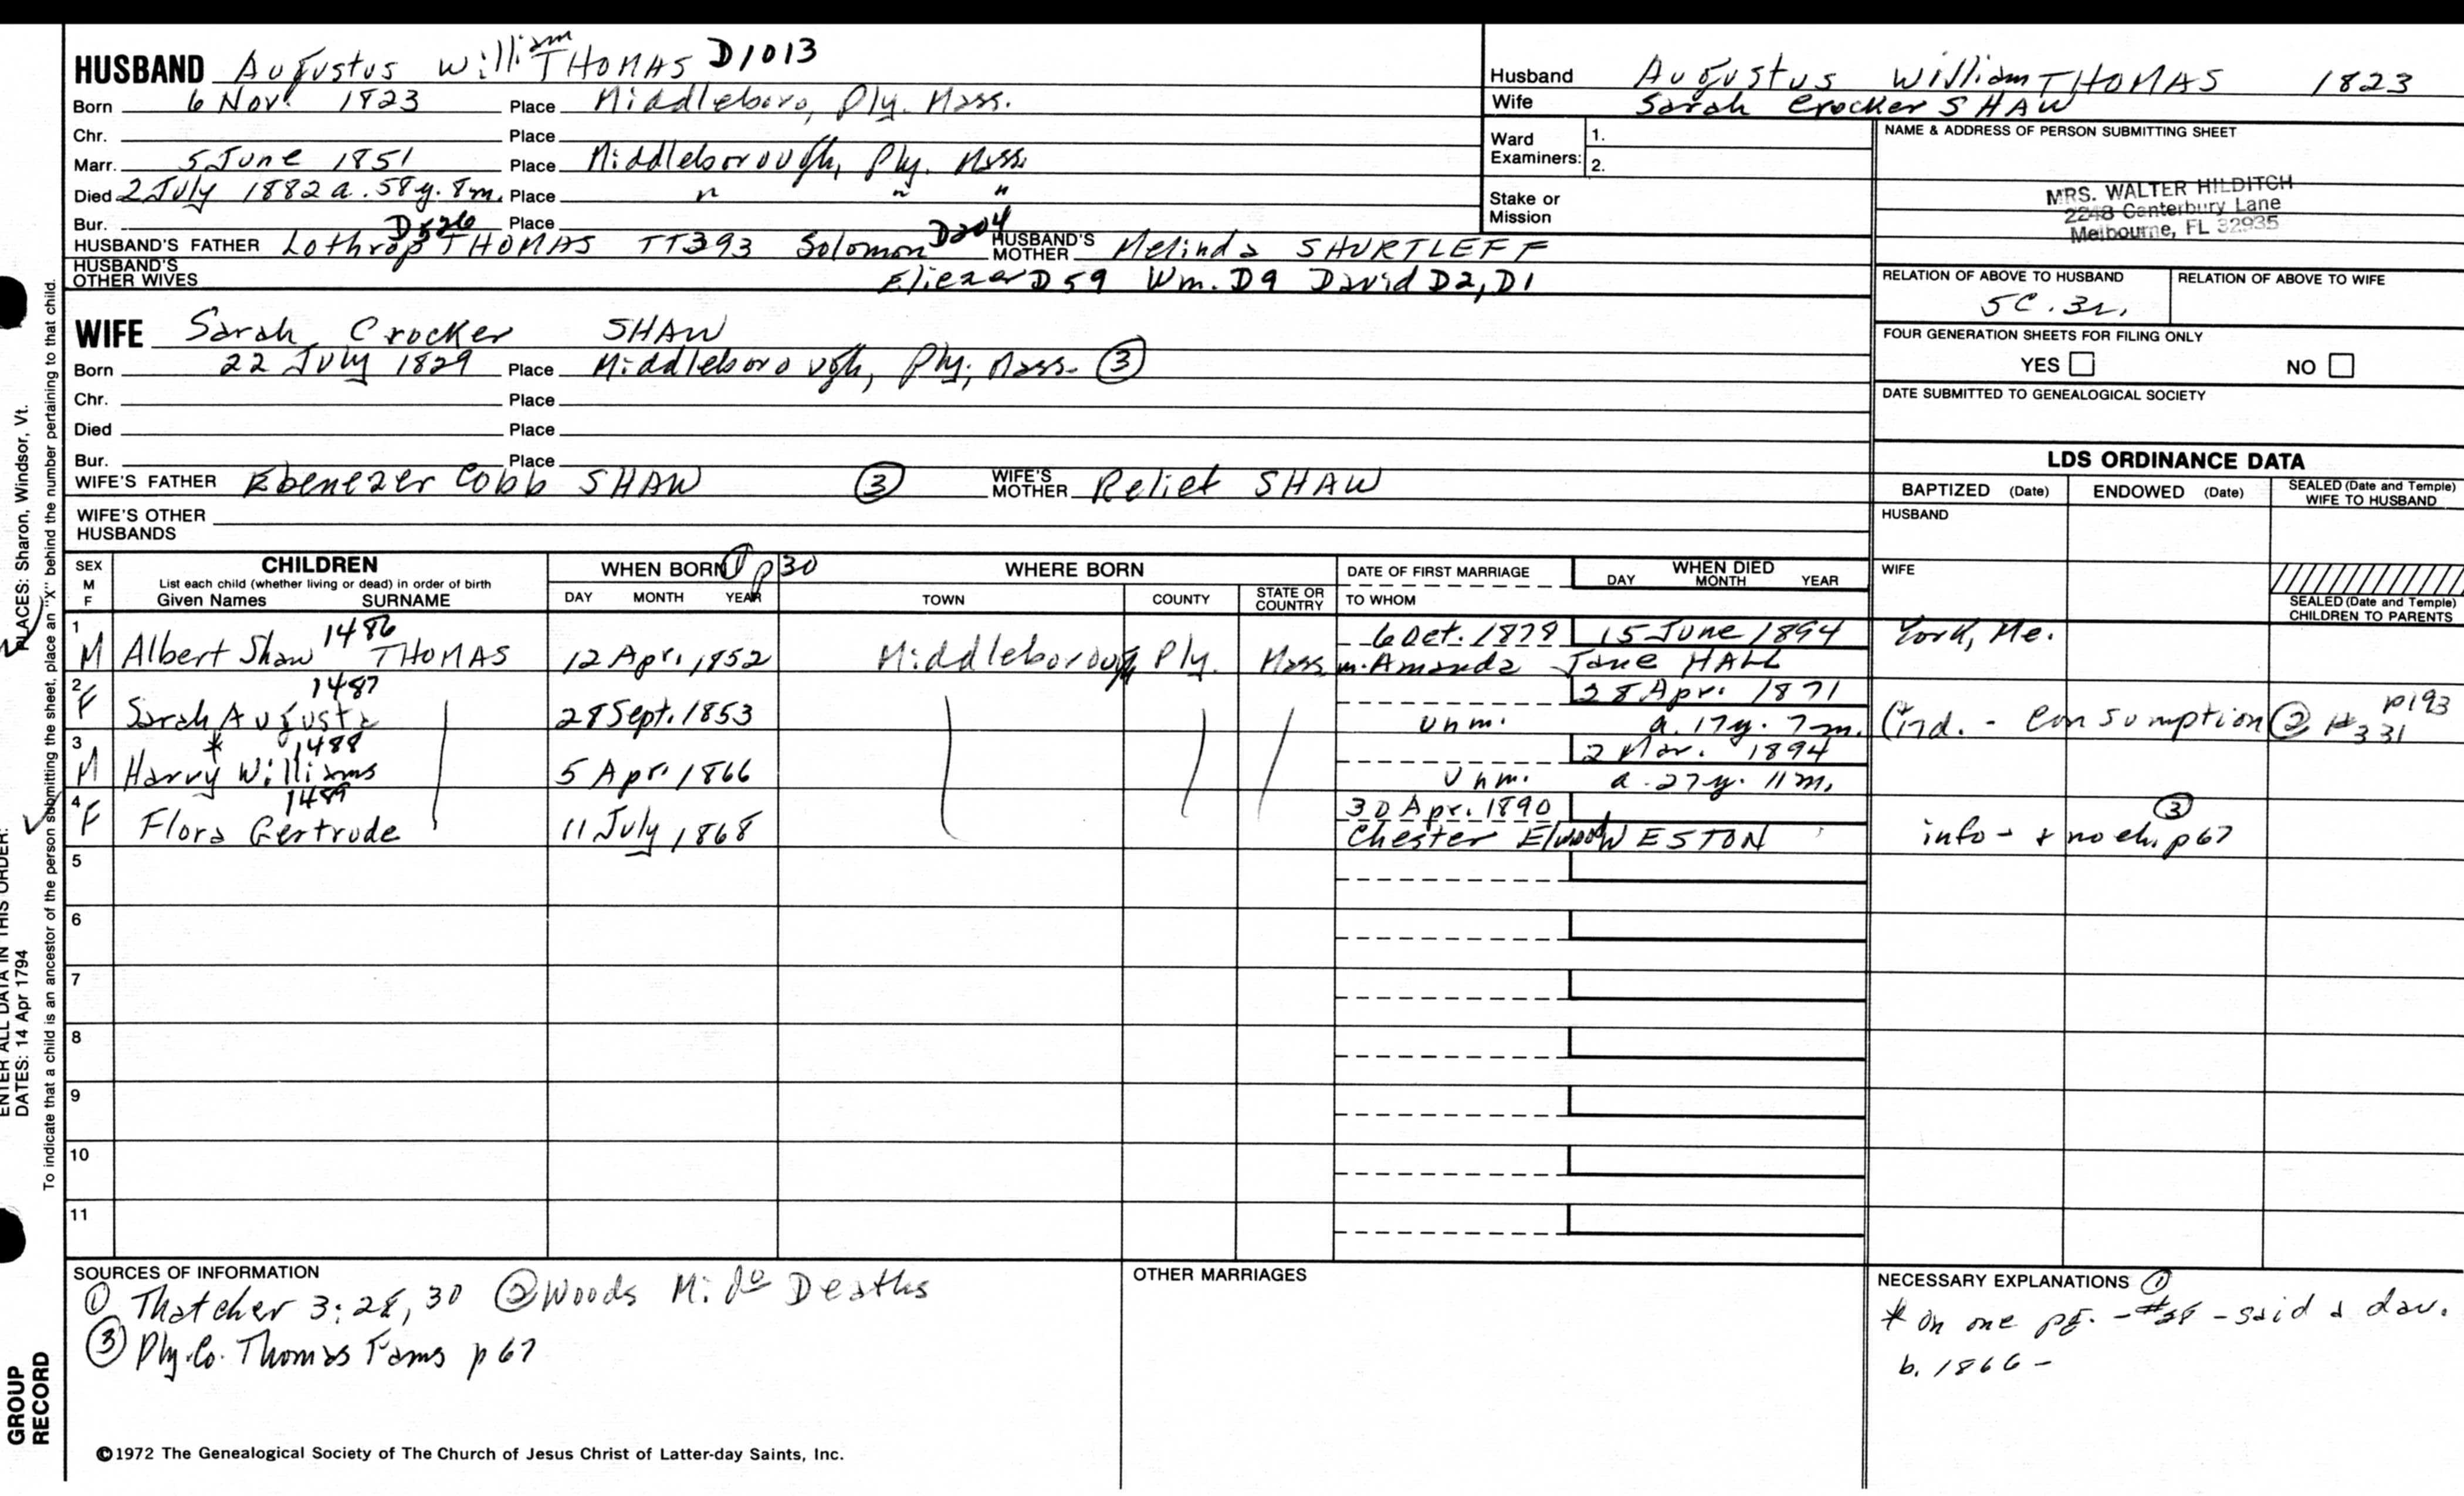 HUSBAND Augustus William THOMAS D1013
Born 6 Nov. 1823 Place Middleboro, Ply. Mass.
Chr. Place
Marr. 5 June 1851 Place Middleborough, Ply. Mass.
Died 2 July 1882 a. 58y. 8m. Place " " "
Bur. Place
HUSBAND'S FATHER Lothrop D526 THOMAS TT393 Solomon D204 HUSBAND'S MOTHER Melinda SHURTLEFF
HUSBAND'S OTHER WIVES Eliezer D59 Wm. D9 David D2, D1
WIFE Sarah Crocker SHAW
Born 22 July 1829 Place Middleborough, Ply, Mass. ③
Chr. Place
Died Place
Bur. Place
WIFE'S FATHER Ebenezer Cobb SHAW ③ WIFE'S MOTHER Relief SHAW
WIFE'S OTHER HUSBANDS
Husband Augustus William THOMAS 1823
Wife Sarah Crocker SHAW
Ward Examiners: 1.
2.
Stake or Mission
NAME & ADDRESS OF PERSON SUBMITTING SHEET
MRS. WALTER HILDITCH
2248 Canterbury Lane
Melbourne, FL 32935
RELATION OF ABOVE TO HUSBAND RELATION OF ABOVE TO WIFE
5C. 3r.
FOUR GENERATION SHEETS FOR FILING ONLY
YES NO
DATE SUBMITTED TO GENEALOGICAL SOCIETY
LDS ORDINANCE DATA
BAPTIZED (Date) ENDOWED (Date) SEALED (Date and Temple) WIFE TO HUSBAND
HUSBAND
WIFE
SEALED (Date and Temple) CHILDREN TO PARENTS
SEX M F CHILDREN WHEN BORN ① p30 WHERE BORN DATE OF FIRST MARRIAGE WHEN DIED
List each child (whether living or dead) in order of birth DAY MONTH YEAR
Given Names SURNAME DAY MONTH YEAR TOWN COUNTY STATE OR COUNTRY TO WHOM
1 1486 6 Oct. 1878 15 June 1894 York, Me.
M Albert Shaw THOMAS 12 Apr. 1852 Middleborough Ply. Mass m. Amanda Jane HALL
2 F 1487 28 Apr. 1871
Sarah Augusta 28 Sept. 1853 unm. a. 17y. 7m. Gd. - Consumption ② p193 #331
3 * 1488 2 Mar. 1894
M Harry Williams 5 Apr. 1866 unm. a. 27y. 11m.
4 1489 30 Apr. 1890 ③
F Flora Gertrude 11 July 1868 Chester Elwood WESTON info - + no ch. p67
5
6
7
8
9
10
11
SOURCES OF INFORMATION
① Thatcher 3:28, 30 ② Woods Mido Deaths
③ Ply. Co. Thomas Fams p 67
OTHER MARRIAGES
NECESSARY EXPLANATIONS ①
* on one pg. - #28 - said a dau.
b. 1866 -
©1972 The Genealogical Society of The Church of Jesus Christ of Latter-day Saints, Inc.
GROUP RECORD
ENTER ALL DATA IN THIS ORDER:
DATES: 14 Apr 1794
PLACES: Sharon, Windsor, Vt.
To indicate that a child is an ancestor of the person submitting the sheet, place an "X" behind the number pertaining to that child.